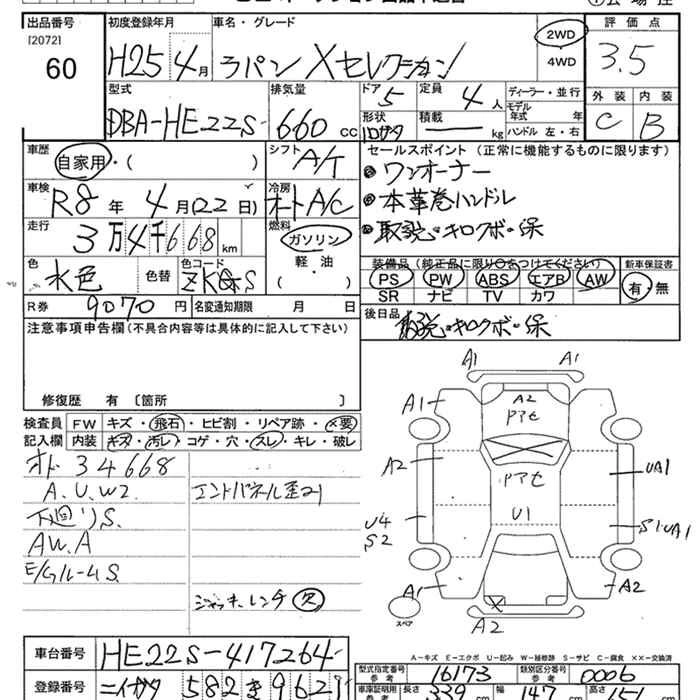 出品番号 初度登録年月 車名・グレード 2WD 評価点
[2072] 60 H25 4月 ラパン Xセレクション 4WD 3.5
型式 排気量 ドア 定員 ディーラー・並行 外装 内装
DBA-HE22S 660 CC 5 4人 モデル年式 年式 C B
形状 積載 kg ハンドル 左・右
車歴 シフト セールスポイント (正常に機能するものに限ります)
自家用・( ) A/T ワンオーナー
車検 冷房 本革巻ハンドル
R8年 4月(22日) オートA/C
走行 燃料 取説・キロクボ・保
3万4千668km ガソリン
色 色替 色コード 軽・油 装備品 (純正品に限り○をつけてください) 新車保証書
水色 ZKGS ( ) PS PW ABS エアB AW 有・無
SR ナビ TV カワ
R券 9070円 名変通知期限 月 日 後日品
注意事項申告欄(不具合内容等は具体的に記入して下さい) 取説・キロクボ・保
修復歴 有 〔箇所 〕
検査員 FW キズ・飛石・ヒビ割・リペア跡・×要
記入欄 内装 キズ・汚レ・コゲ・穴・スレ・キレ・破レ
オド 34668
A.U.W2. エンドパネル歪21
下廻りS.
AW.A
E/GルームS
ジャッキ・レンチ 欠
A1 A1
A1 A2
アアセ
A2 アアセ UA1
U1
U4 S1UA1
S2
A1 A2
スペア X
A2
A-キズ E-エクボ U-凹み W-補修跡 S-サビ C-腐食 ××-交換済
車台番号 HE22S-417264 型式指定番号 参考 16173 類別区分番号 参考 0006
登録番号 ニイガタ 582 き 962 車庫証明用 参考 長さ 339 cm 幅 147 cm 高さ 151